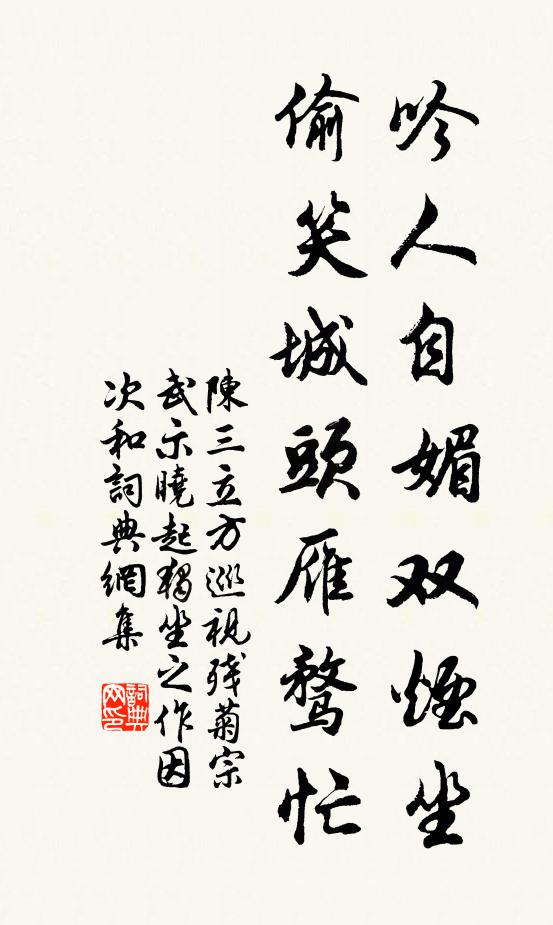 吟人自媚双煙坐
偷笑城頭雁鶩忙
陳三立方巡視残菊宗
武示曉起獨坐之作因
次和詞典網集
詞典網印